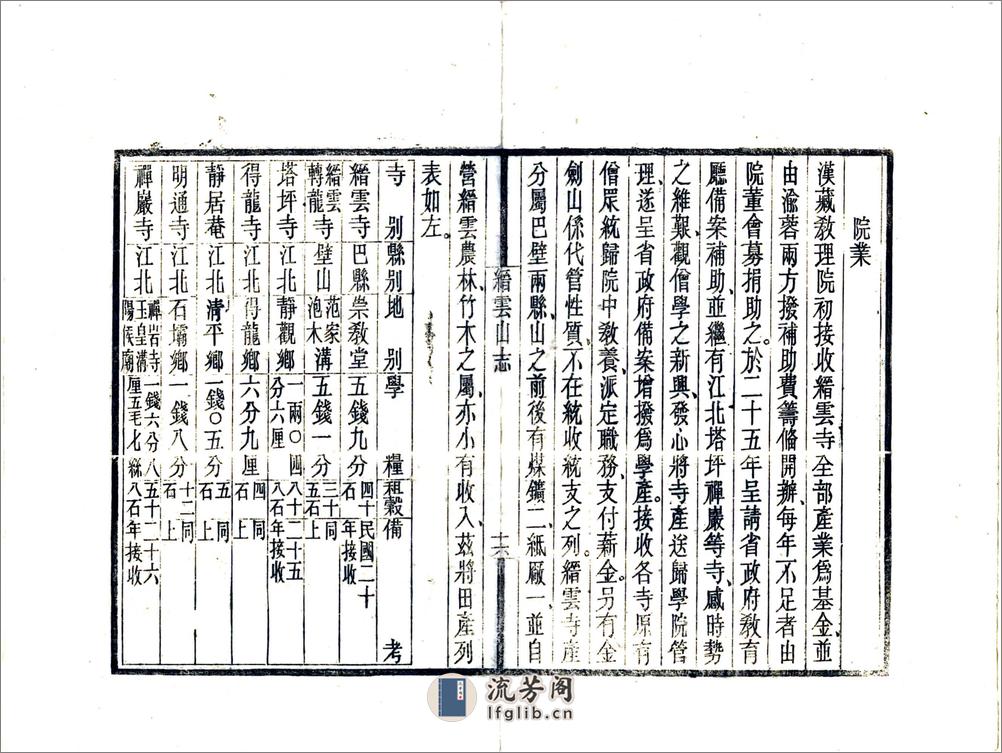 院業
漢藏教理院初接收縉雲寺全部產業爲基金、並
由渝蓉兩方撥補助費籌備開辦、每年不足者由
院董會募捐助之。於二十五年呈請省政府教育
廳備案補助、並繼有江北塔坪禪巖等寺、感時勢
之維艱、觀僧學之新興、發心將寺產送歸學院管
理、遂呈省政府備案增撥爲學產。接收各寺原有
僧眾統歸院中教養、派定職務、支付薪金。另有金
劍山係代管性質、不在統收統支之列。縉雲寺產
分屬巴璧兩縣、山之前後有煤鑛二、紙厰一、並自
縉雲山志
十六
營縉雲農林、竹木之屬、亦小有收入、茲將田產列
表如左。
寺別 縣別 地別 學糧 租穀 備考
縉雲寺 巴縣 崇教堂 五錢九分 四十石 民國二十年接收
縉雲轉龍寺 璧山 范家泡木溝 五錢一分 三十五石 同上
塔坪寺 江北 靜觀鄉 一兩〇四分六厘 八十八石 二十五年接收
得龍寺 江北 得龍鄉 六分九厘 四石 同上
靜居菴 江北 清平鄉 一錢〇五分 五石 同上
明通寺 江北 石壩鄉 一錢八分 十二石 同上
禪巖寺 江北 禪岩寺玉皇溝陽候廟 一錢六分八厘五毛七絲 五十八石 二十六年接收
流芳阁
lfglib.cn